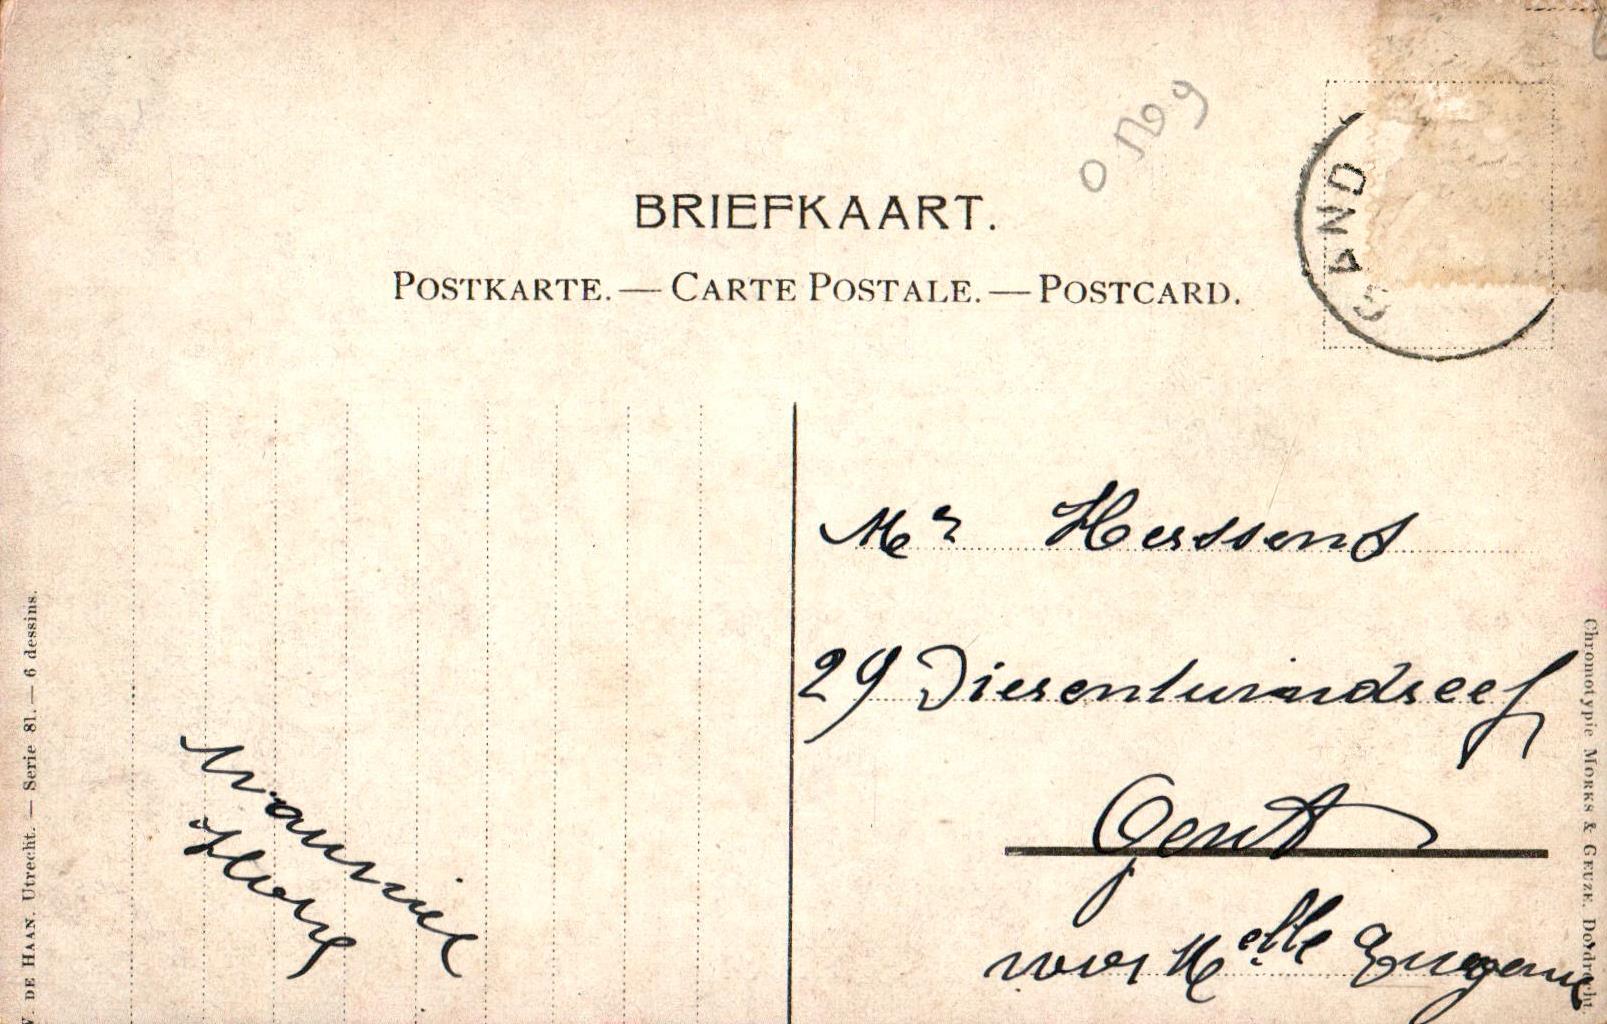 BRIEFKAART.
POSTKARTE. — CARTE POSTALE. — POSTCARD.
GAND
Mr Hessens
29
Gent
voor Melle Eugenie
W. DE HAAN. Utrecht. — Serie 81. — 6 dessins.
Chromotypie MORKS & GEUZE. Dordrecht.